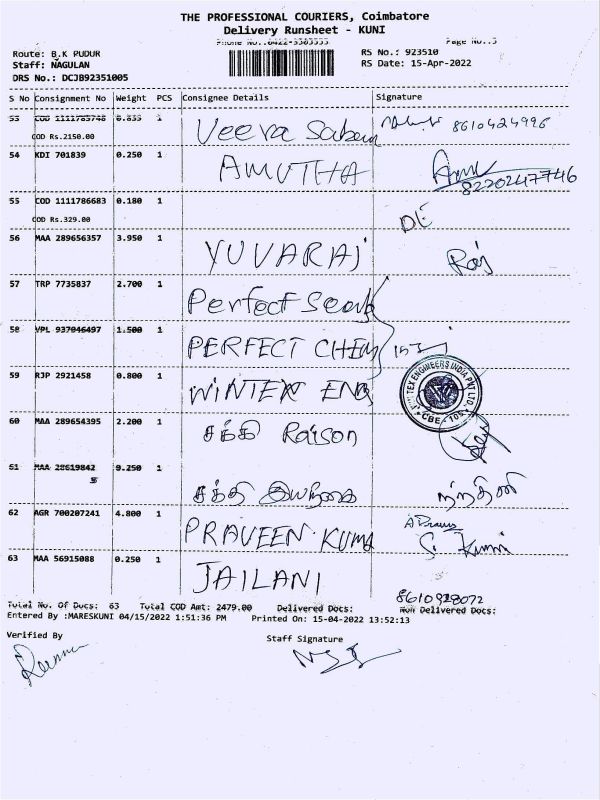 THE PROFESSIONAL COURIERS, Coimbatore
Delivery Runsheet - KUNI
Phone No.:0422-3303333 Page No.:5
Route: B.K PUDUR RS No.: 923510
Staff: NAGULAN RS Date: 15-Apr-2022
DRS No.: DCJB92351005
S No Consignment No Weight PCS Consignee Details Signature
53 COD 1111785748 0.835 1 Veeva 8610424996
COD Rs.2150.00
54 KDI 701839 0.250 1 AMUTHA
55 COD 1111786683 0.180 1
COD Rs.329.00
56 MAA 289656357 3.950 1 YUVARAJ Raj
57 TRP 7735837 2.700 1 Perfect
58 VPL 937046497 1.500 1 PERFECT CHEM
59 RJP 2921458 0.800 1 WINTEX ENG
TEX ENGINEERS INDIA PVT LTD.
CBE - 106
60 MAA 289654395 2.200 1 சக்தி Raison
61 MAA 28619842 9.250 1 சக்தி
5
62 AGR 700207241 4.800 1 PRAVEEN KUMA S. Kumar
63 MAA 56915088 0.250 1 JAILANI
Total No. Of Docs: 63 Total COD Amt: 2479.00 Delivered Docs: Non Delivered Docs:
Entered By :MARESKUNI 04/15/2022 1:51:36 PM Printed On: 15-04-2022 13:52:13
Verified By Staff Signature